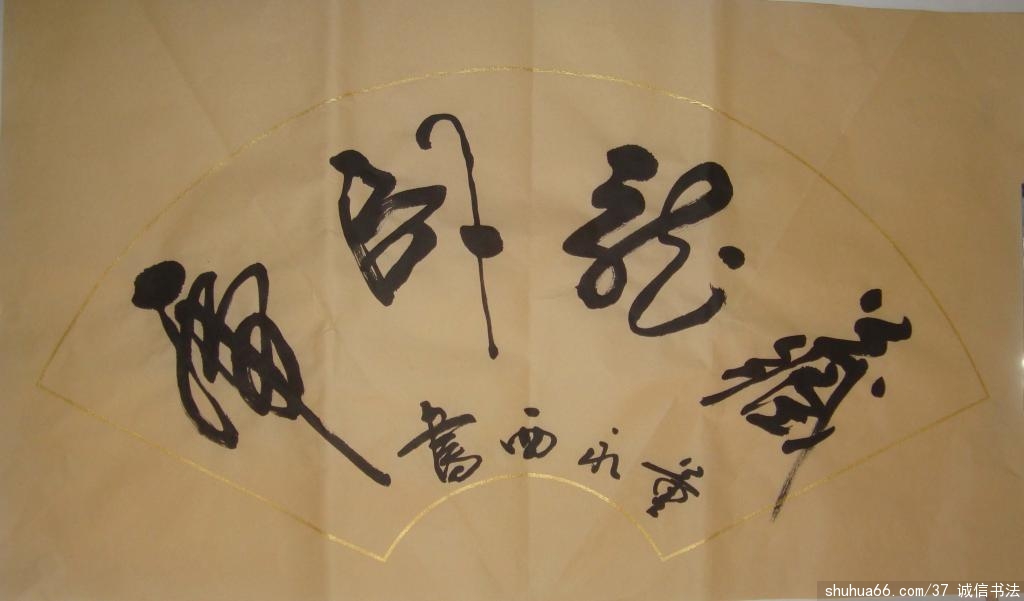 藏龍卧虎
董永西書
shuhua66.com/37 诚信书法